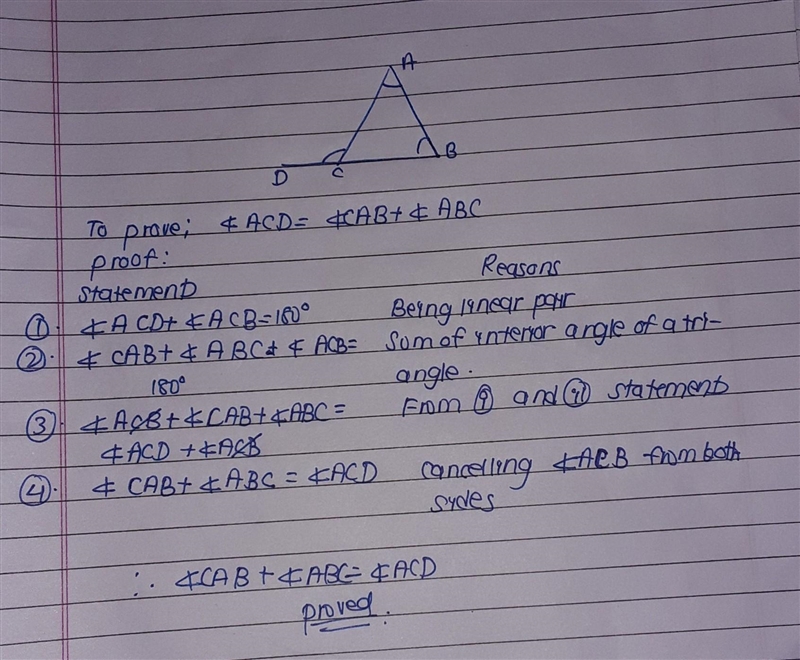 A
B
D
C
To prove; ∡ACD= ∡CAB+ ∡ABC
proof:
Statement Reasons
①. ∡ACD+ ∡ACB=180° Being linear pair
②. ∡CAB+ ∡ABC+ ∡ACB= Sum of interior angle of a tri-
180° angle.
③. ∡ACB+∡CAB+∡ABC= From ⓘ and ⓘⓘ statement
∡ACD +∡ACB
④. ∡CAB+∡ABC = ∡ACD Cancelling ∡ACB from both
sydes
∴ ∡CAB+∡ABC=∡ACD
proved.